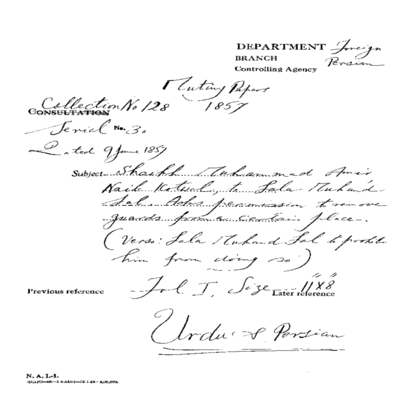 DEPARTMENT Foreign
BRANCH Persian
Controlling Agency
Mutiny Papers
Collection No 128 1857
CONSULTATION
Serial No. 30
Dated 9 June 1857
Subject Shaikh Muhammad Amir
Naib Kotwal, to Lala Mukand
Lal. Asks permission to remove
guards from a certain place.
(Verso: Lala Mukand Lal to prohibit
him from doing so)
Previous reference Fol I, Size 11"x8" Later reference
Urdu & Persian
N. A. I.-1.